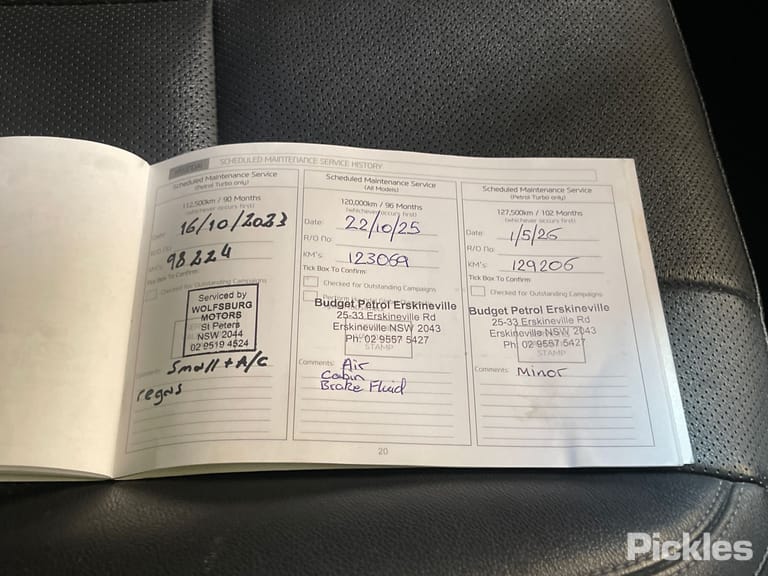 HYUNDAI SCHEDULED MAINTENANCE SERVICE HISTORY
Scheduled Maintenance Service
(Petrol Turbo only)
112,500km / 90 Months
(whichever occurs first)
Date: 16/10/2023
R/O no:
KM's: 98224
Tick Box To Confirm:
Checked for Outstanding Campaigns
Serviced by
WOLFSBURG
MOTORS
St Peters
NSW 2044
02 9519 4524
Comments: Small + A/C
regas
Scheduled Maintenance Service
(All Models)
120,000km / 96 Months
(whichever occurs first)
Date: 22/10/25
R/O no:
KM's: 123069
Tick Box To Confirm:
Checked for Outstanding Campaigns
Budget Petrol Erskineville
25-33 Erskineville Rd
Erskineville NSW 2043
Ph: 02 9557 5427
STAMP
Comments: Air
Cabin
Brake Fluid
Scheduled Maintenance Service
(Petrol Turbo only)
127,500km / 102 Months
(whichever occurs first)
Date: 1/5/26
R/O no:
KM's: 129206
Tick Box To Confirm:
Checked for Outstanding Campaigns
Budget Petrol Erskineville
25-33 Erskineville Rd
Erskineville NSW 2043
Ph: 02 9557 5427
STAMP
Comments: Minor
20
Pickles